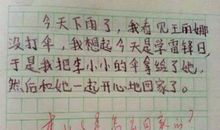 今天下雨了，我看见王丽娜
没打伞，我想起今天是学雷锋日，
于是我把朱小小的伞拿给了她，
然后和她一起开心地回家了。